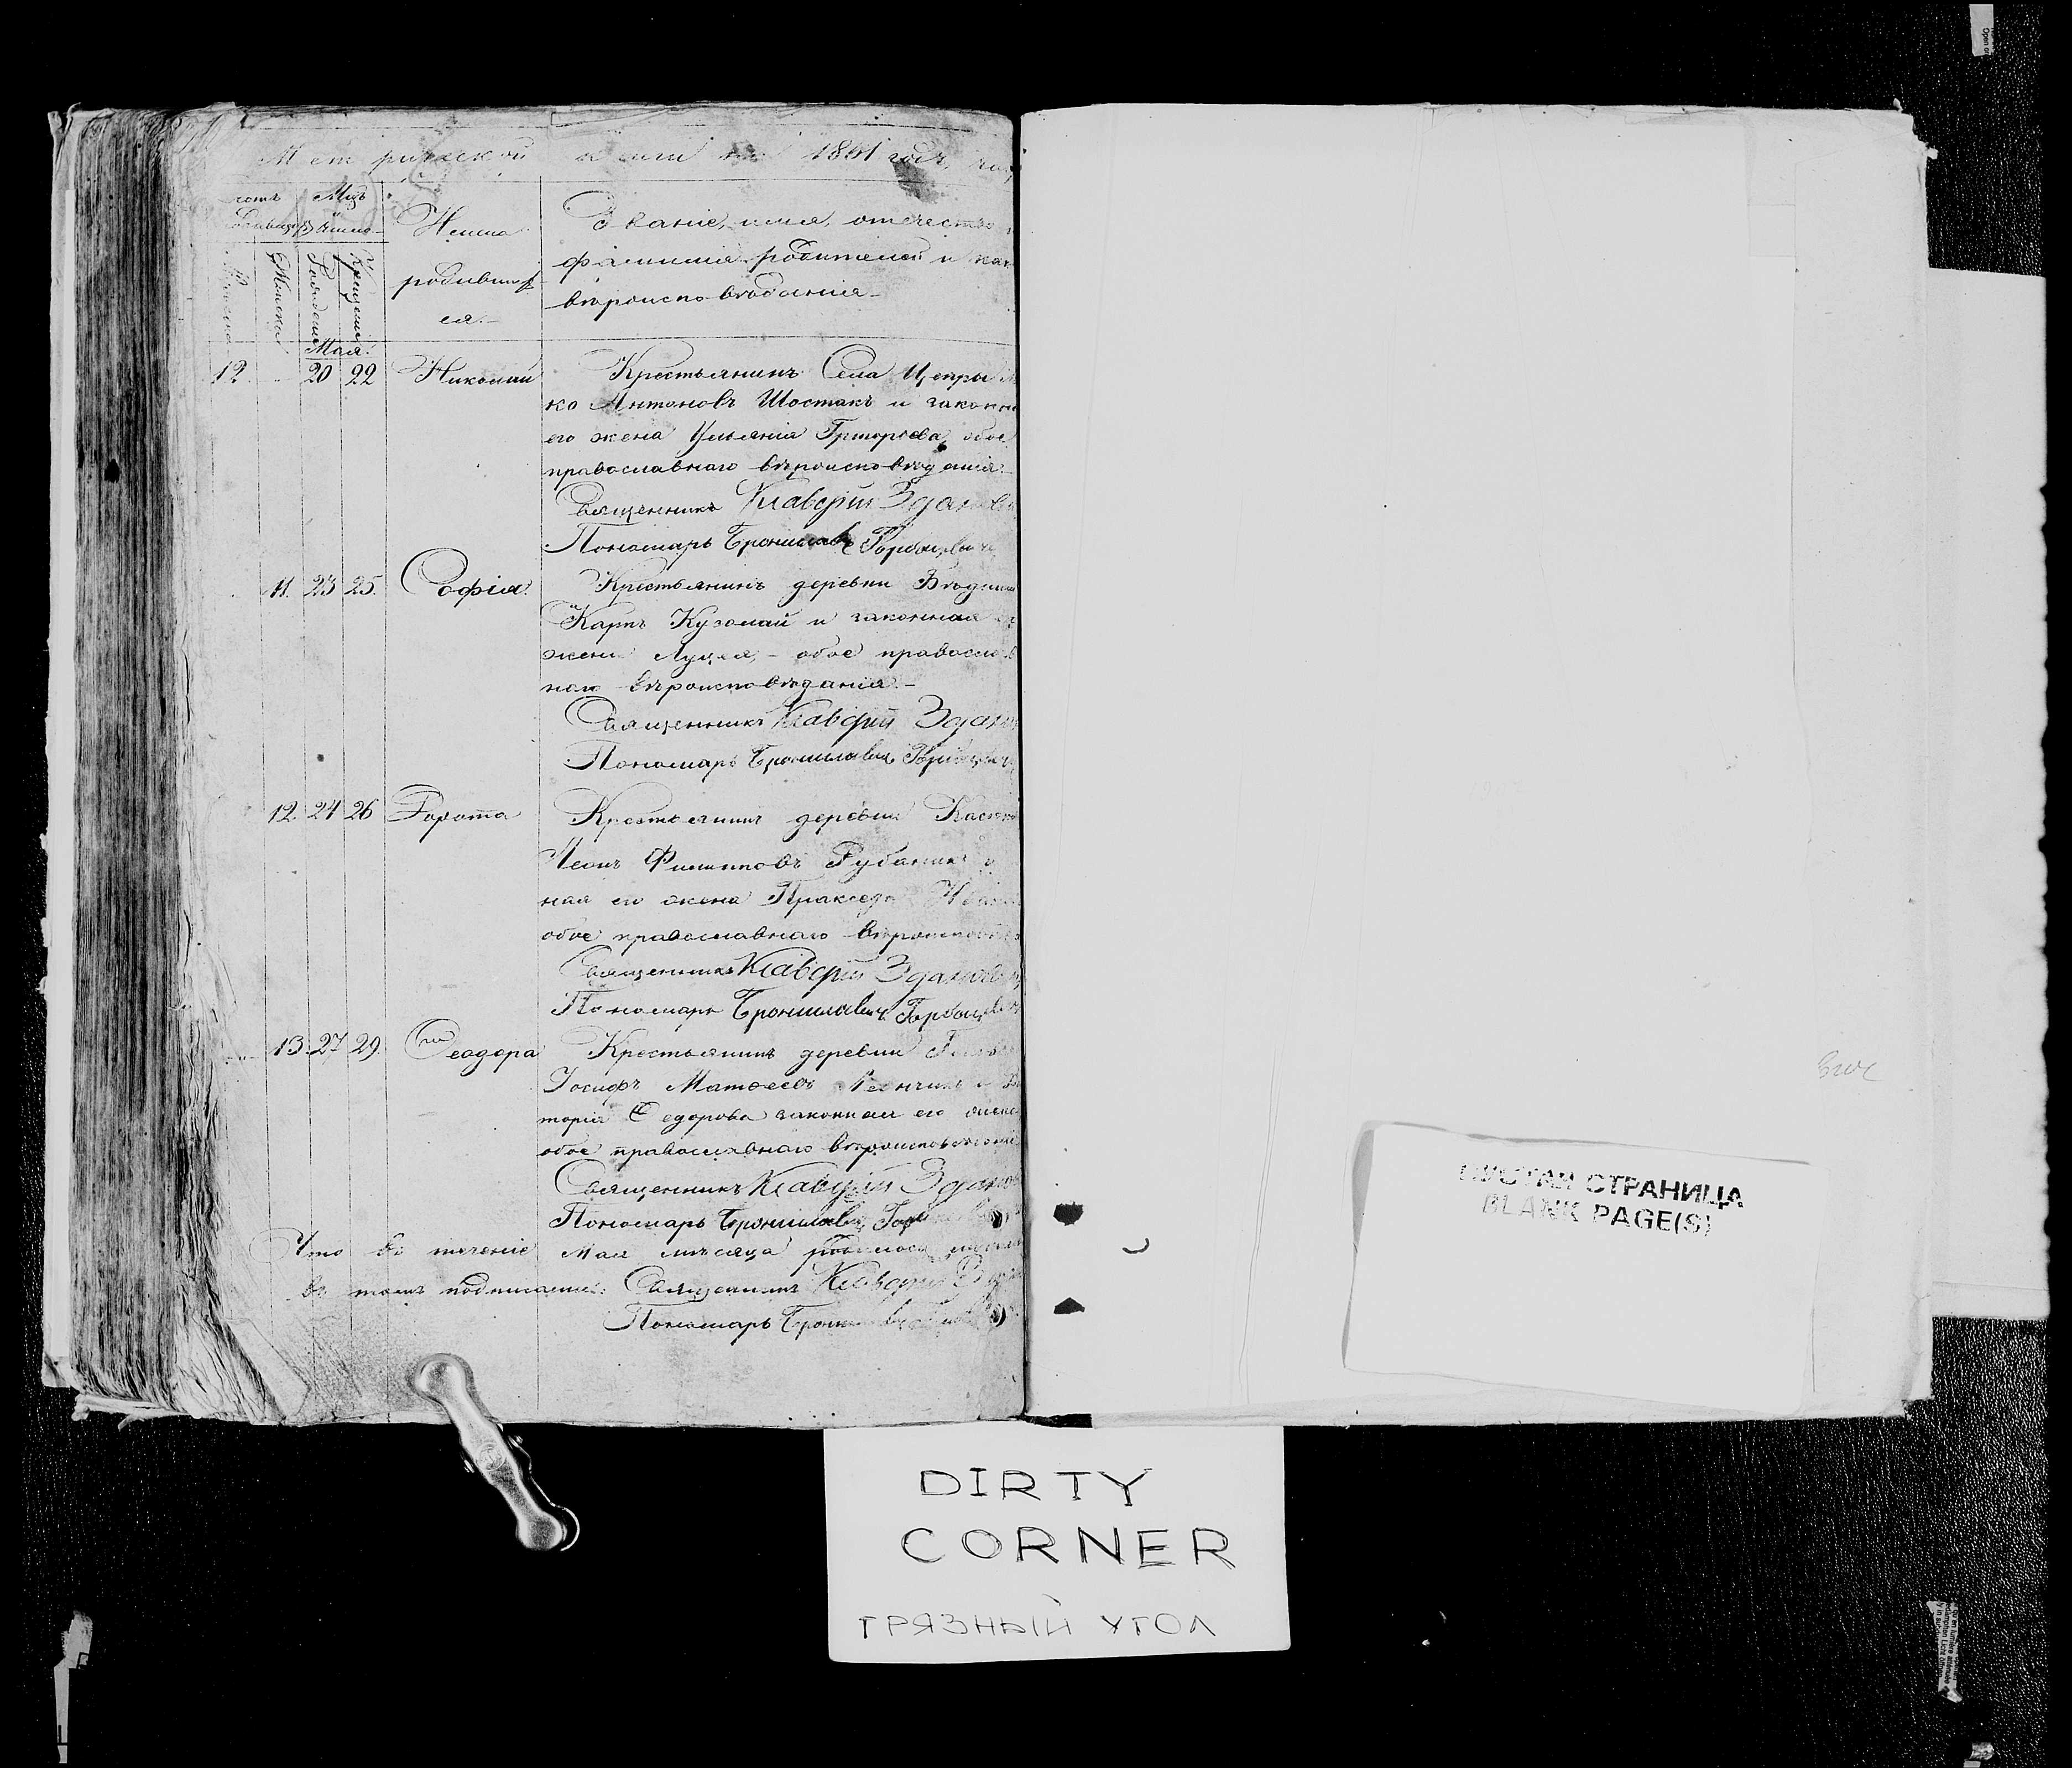 Метрической книги на 1861 годъ,
Счетъ родившихся
Мцъ и число
Имена родившихся.
Званіе, имя, отечество
фамилія родителей и как
вѣроисповѣданія
Мужеска
Женска
Рожденія
Крещенія
Мая.
12 20 22 Николай Крестьянинъ Села Цепры
ко Антоновъ Шостакъ и законн
его жена Ульянія Григорьева, обое
православнаго вѣроисповѣданія.
Священникъ Ксаверій Зданов
Пономарь Брониславъ Горбацевич
11. 23 25. Софія. Крестьянинъ деревни
Карпъ Кузьмай и законная
жена Луцея, обое православ
наго вѣроисповѣданія.
Священникъ Ксаверій Здан
Пономарь Брониславъ Горбацевич
12. 24 26 Дорота Крестьянинъ деревни
Леонъ Филипповъ Рубаникъ
ная его жена Пракседа
обое православнаго вѣроисповѣ
Священникъ Ксаверій Зданов
Пономарь Брониславъ Горбацевич
13. 27 29. Ѳеодора Крестьянинъ деревни
Іосифъ Матѳеевъ
торія Ѳедорова законная его жена
обое православнаго вѣроисповѣданія
Священникъ Ксаверій Зданов
Пономарь Брониславъ
Что въ теченіе Мая мѣсяца родилось
въ томъ подписами: Священникъ Ксаверій
Пономарь
ПУСТАЯ СТРАНИЦА
BLANK PAGE(S)
DIRTY
CORNER
ГРЯЗНЫЙ УГОЛ